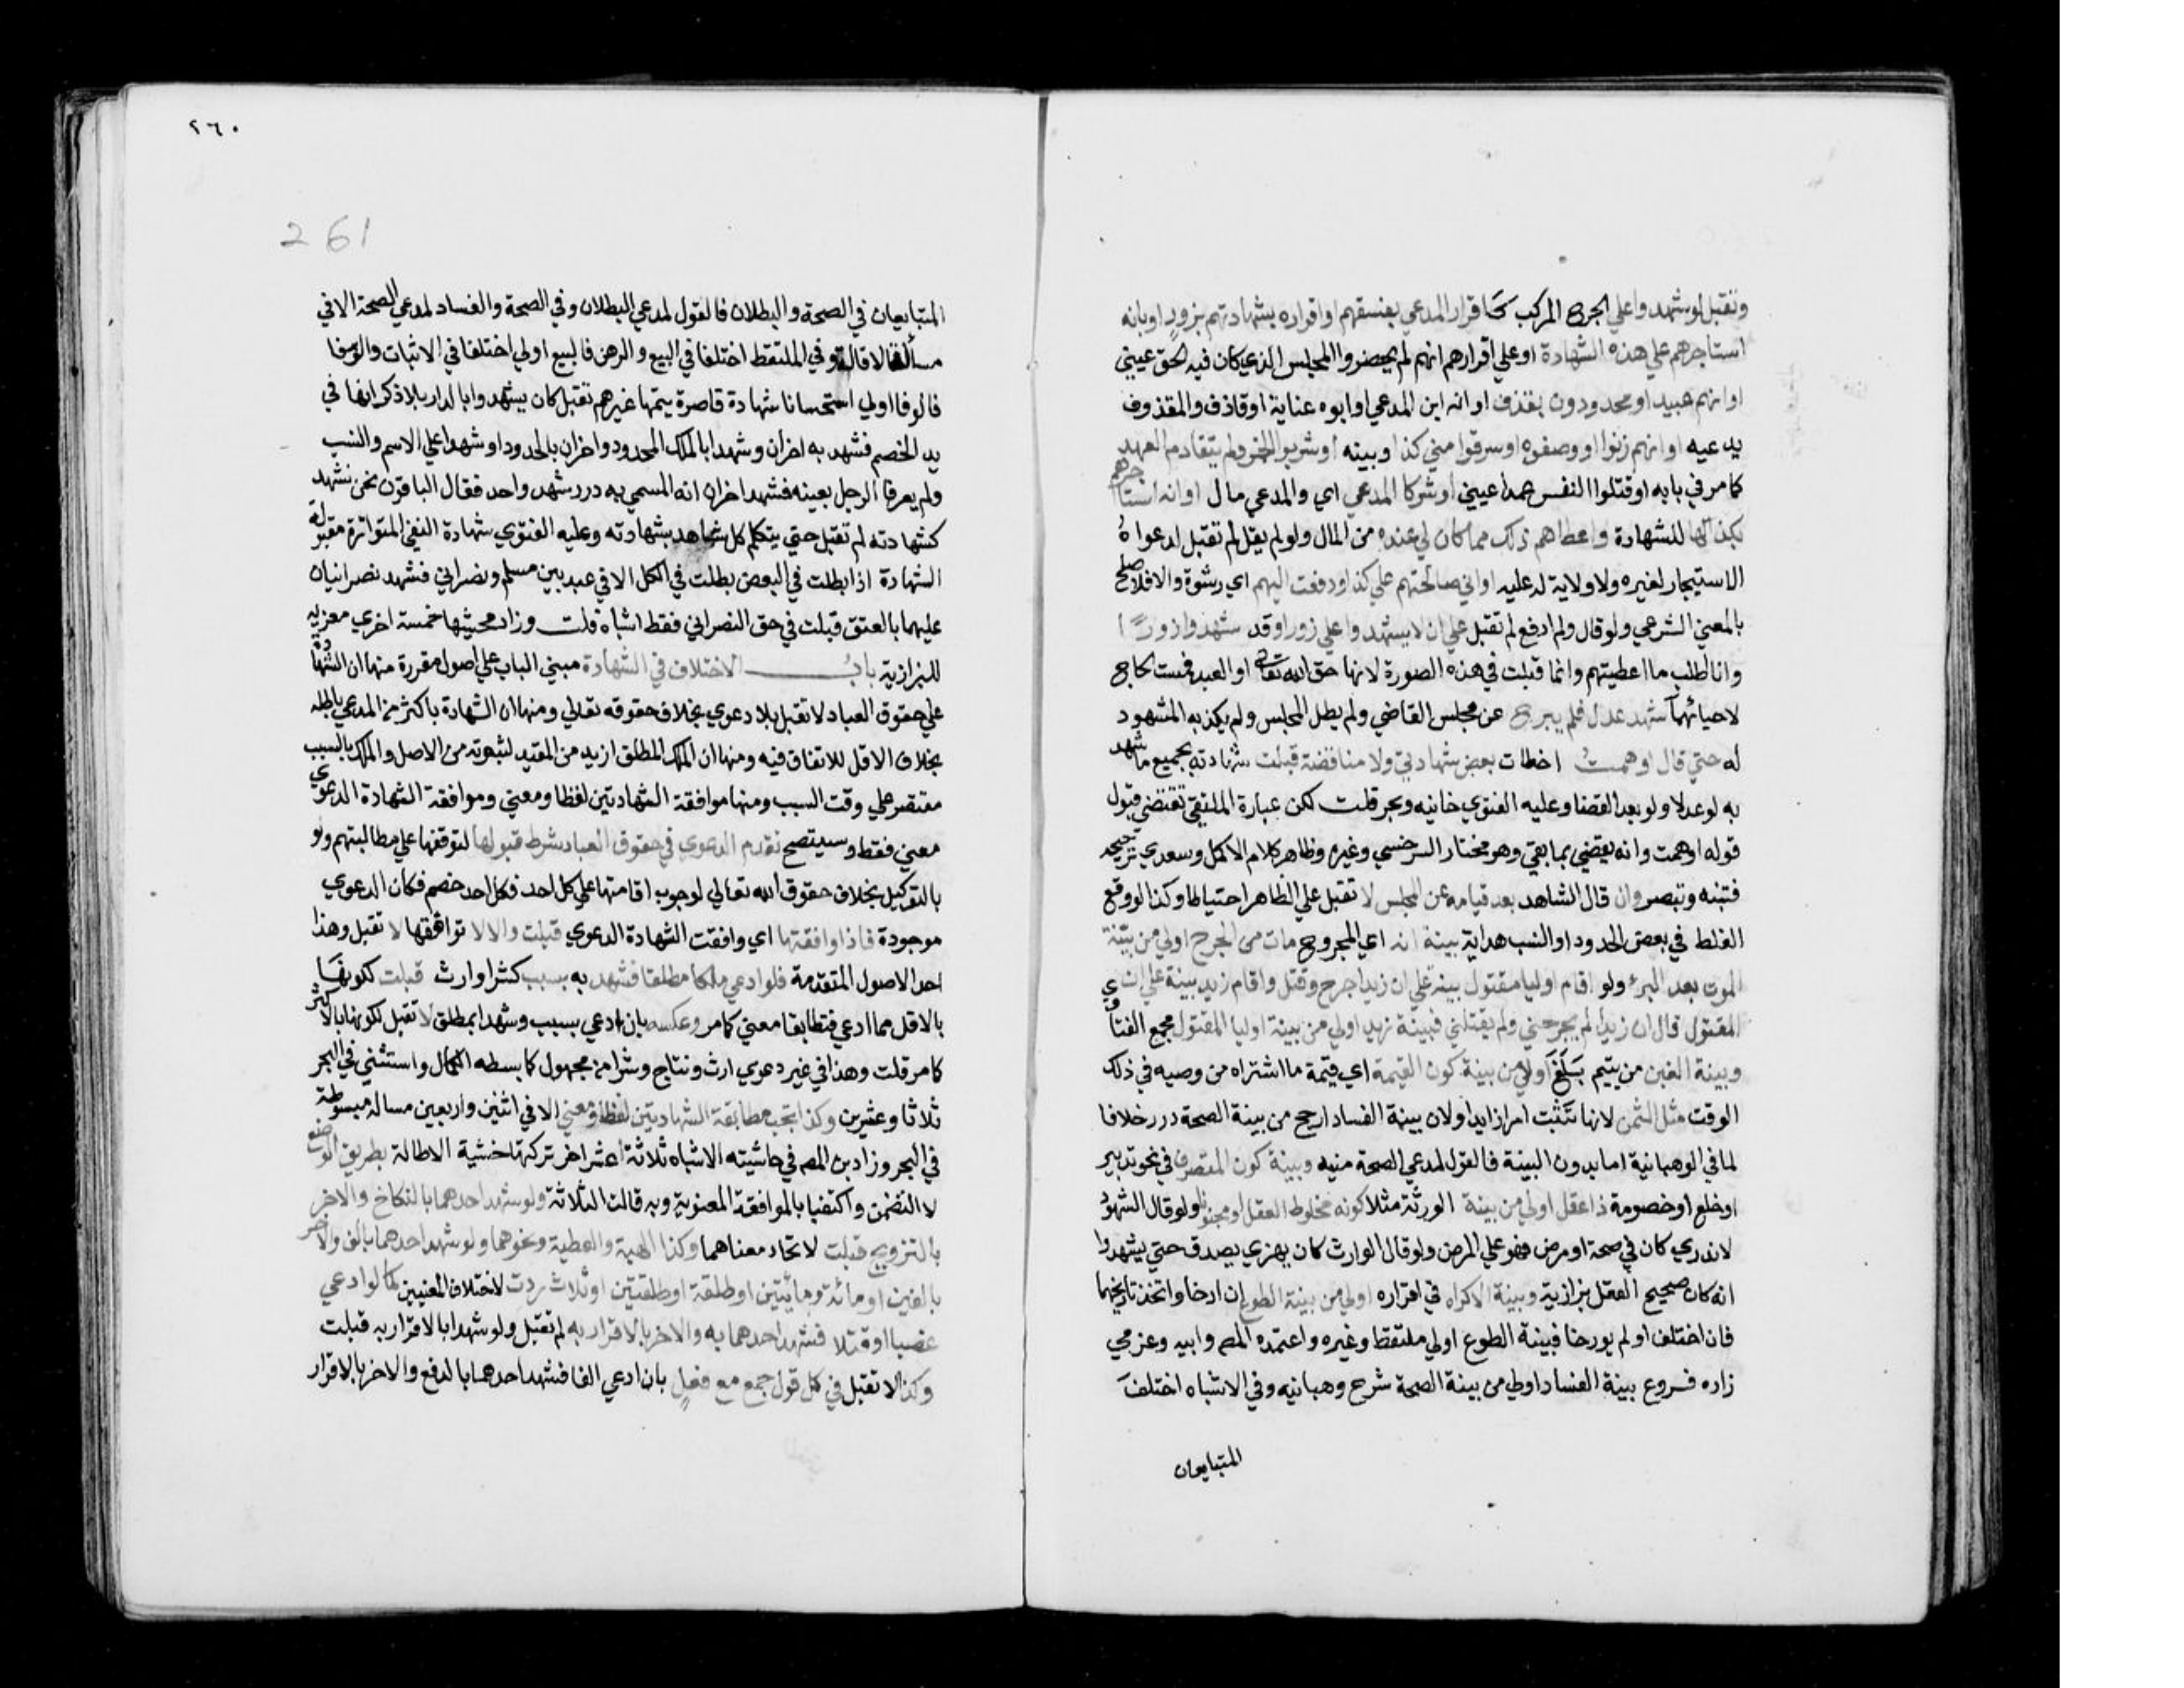 وتقبل لو شهدوا علي الجرح المركب كاقرار المدعي بفسقهم او اقراره بشهادتهم بزور او بانه
استاجرهم علي هذه الشهادة او علي اقرارهم انهم لم يحضروا المجلس الذي كان فيه الحق عيني
او انهم عبيد او محدودون بقذف او انه ابن المدعي او ابوه عناية او قاذف والمقذوف
يدعيه او انهم زنوا او وصفوه او سرقوا مني كذا وبينه او شربوا الخمر ولم يتقادم العهد
كما مر في بابه او قتلوا النفس عمدا عيني او شركا المدعي اي والمدعي مال او انه استاجرهم
بكذا لها للشهادة واعطاهم ذلك مما كان لي عنده من المال ولو لم يقل لم تقبل لدعواه
الاستيجار لغيره ولا ولاية له عليه او اني صالحتهم علي كذا ودفعت اليهم اي رشوة والا فلا صلح
بالمعني الشرعي ولو قال ولم ادفع لم تقبل علي ان لا يشهدوا علي زورا وقد شهدوا زورا
وانا اطلب ما اعطيتهم وانما قبلت في هذه الصورة لانها حق الله تعالى او العبد فمست الحاجة
لاحيائهما شهد عدل فلم يبرح عن مجلس القاضي ولم يطل المجلس ولم يكذبه المشهود
له حتي قال اوهمت اخطات بعض شهادتي ولا مناقضة قبلت شهادته بجميع ما شهد
به لو عدلا ولو بعد القضا وعليه الفتوي خانيه وبحر قلت لكن عبارة الملتقي تقتضي قبول
قوله اوهمت وانه يقضي بما بقي وهو مختار السرخسي وغيره وظاهر كلام الاكمل وسعدي ترجيحه
فتنبه وتبصر وان قال الشاهد بعد قيامه عن المجلس لا تقبل علي الظاهر احتياطا وكذا لو وقع
الغلط في بعض الحدود او النسب هداية بينة انه اي المجروح مات من الجرح اولي من بينة
الموت بعد البرء ولو اقام اوليا مقتول بينة علي ان زيدا جرح وقتل واقام زيد بينة علي ان
المقتول قال ان زيدا لم يجرحني ولم يقتلني فبينة زيد اولي من بينة اوليا المقتول مجمع الفتاوي
وبينة الغبن من يتيم بلغ اولي من بينة كون القيمة اي قيمة ما اشتراه من وصيه في ذلك
الوقت مثل الثمن لانها تثبت امرا زايدا ولان بينة الفساد ارجح من بينة الصحة درر خلافا
لما في الوهبانية اما بدون البينة فالقول لمدعي الصحة منيه وبينة كون المتصرف في نحو تدبير
او خلع او خصومة ذا عقل اولي من بينة الورثة مثلا كونه مخلوط العقل او مجنونا ولو قال الشهود
لا ندري كان في صحة او مرض فهو علي المرض ولو قال الوارث كان يهزي يصدق حتي يشهدوا
انه كان صحيح العقل بزازية وبينة الاكراه في اقراره اولي من بينة الطوع ان ارخا واتخذ تاريخهما
فان اختلف او لم يورخا فبينة الطوع اولي ملتقط وغيره واعتمده المص وابيه وعزمي
زاده فروع بينة الفساد اولي من بينة الصحة شرح وهبانيه وفي الاشباه اختلف
المتبايعان
٢٦٠
261
المتبايعان في الصحة والبطلان فالقول لمدعي البطلان وفي الصحة والفساد لمدعي الصحة الا في
مسألة الاقالة وفي الملتقط اختلفا في البيع والرهن فالبيع اولي اختلفا في الاثبات والوفا
فالوفا اولي استحسانا شهادة قاصرة يتمها غيرهم تقبل كان يشهدوا بالدار بلا ذكر انها في
يد الخصم فشهد به اخران وشهدا بالملك المحدود واخران بالحدود او شهدا علي الاسم والنسب
ولم يعرفا الرجل بعينه فشهد اخران انه المسمي به درر شهد واحد فقال الباقون نحن نشهد
كشهادته لم تقبل حتي يتكلم كل شاهد بشهادته وعليه الفتوي شهادة النفي المتواترة مقبولة
الشهادة اذا بطلت في البعض بطلت في الكل الا في عبد بين مسلم ونصراني فشهد نصرانيان
عليهما بالعتق قبلت في حق النصراني فقط اشباه قلت وزاد محشيها خمسة اخري معزيه
للبزازية باب الاختلاف في الشهادة مبني الباب علي اصول مقررة منها ان الشهادة
علي حقوق العباد لا تقبل بلا دعوي بخلاف حقوقه تعالي ومنها ان الشهادة باكثر من المدعي باطله
بخلاف الاقل للاتفاق فيه ومنها ان الملك المطلق ازيد من المقيد لثبوته من الاصل والملك بالسبب
مقتصر علي وقت السبب ومنها موافقة الشهادتين لفظا ومعني وموافقة الشهادة الدعوي
معني فقط وسيتضح تقدم الدعوي في حقوق العباد شرط قبولها لتوقفها علي مطالبتهم ولو
بالتوكيل بخلاف حقوق الله تعالي لوجوب اقامتها علي كل احد فكل احد خصم فكان الدعوي
موجودة فاذا وافقتها اي وافقت الشهادة الدعوي قبلت والا لا توافقها لا تقبل وهذا
احد الاصول المتقدمة فلو ادعي ملكا مطلقا فشهد به بسبب كشرا وارث قبلت لكونها
بالاقل مما ادعي فتطابقا معني كما مر وعكسه بان ادعي بسبب وشهدا بمطلق لا تقبل لكونها بالاكثر
كما مر قلت وهذا في غير دعوي ارث ونتاج وشرا من مجهول كما بسطه الكمال واستثني في البحر
ثلاثا وعشرين وكذا تجب مطابقة الشهادتين لفظا ومعني الا في اثنين واربعين مسالة مبسوطة
في البحر وزاد بن المص في حاشيته الاشباه ثلاثة اعشر اخر تركتها خشية الاطالة بطريق الوضع
لا التضمن واكتفيا بالموافقة المعنوية وبه قالت الثلاثة ولو شهد احدهما بالنكاح والاخر
بالتزويج قبلت لاتحاد معناهما وكذا الهبة والعطية ونحوهما ولو شهد احدهما بالف والاخر
بالفين او مائة ومائتين او طلقة او طلقتين او ثلاث ردت لاختلاف المعنيين كما لو ادعي
غصبا او قتلا فشهد احدهما به والاخر بالاقرار به لم تقبل ولو شهدا بالاقرار به قبلت
وكذا لا تقبل في كل قول جمع مع فعل بان ادعي الفا فشهد احدهما بالدفع والاخر بالاقرار